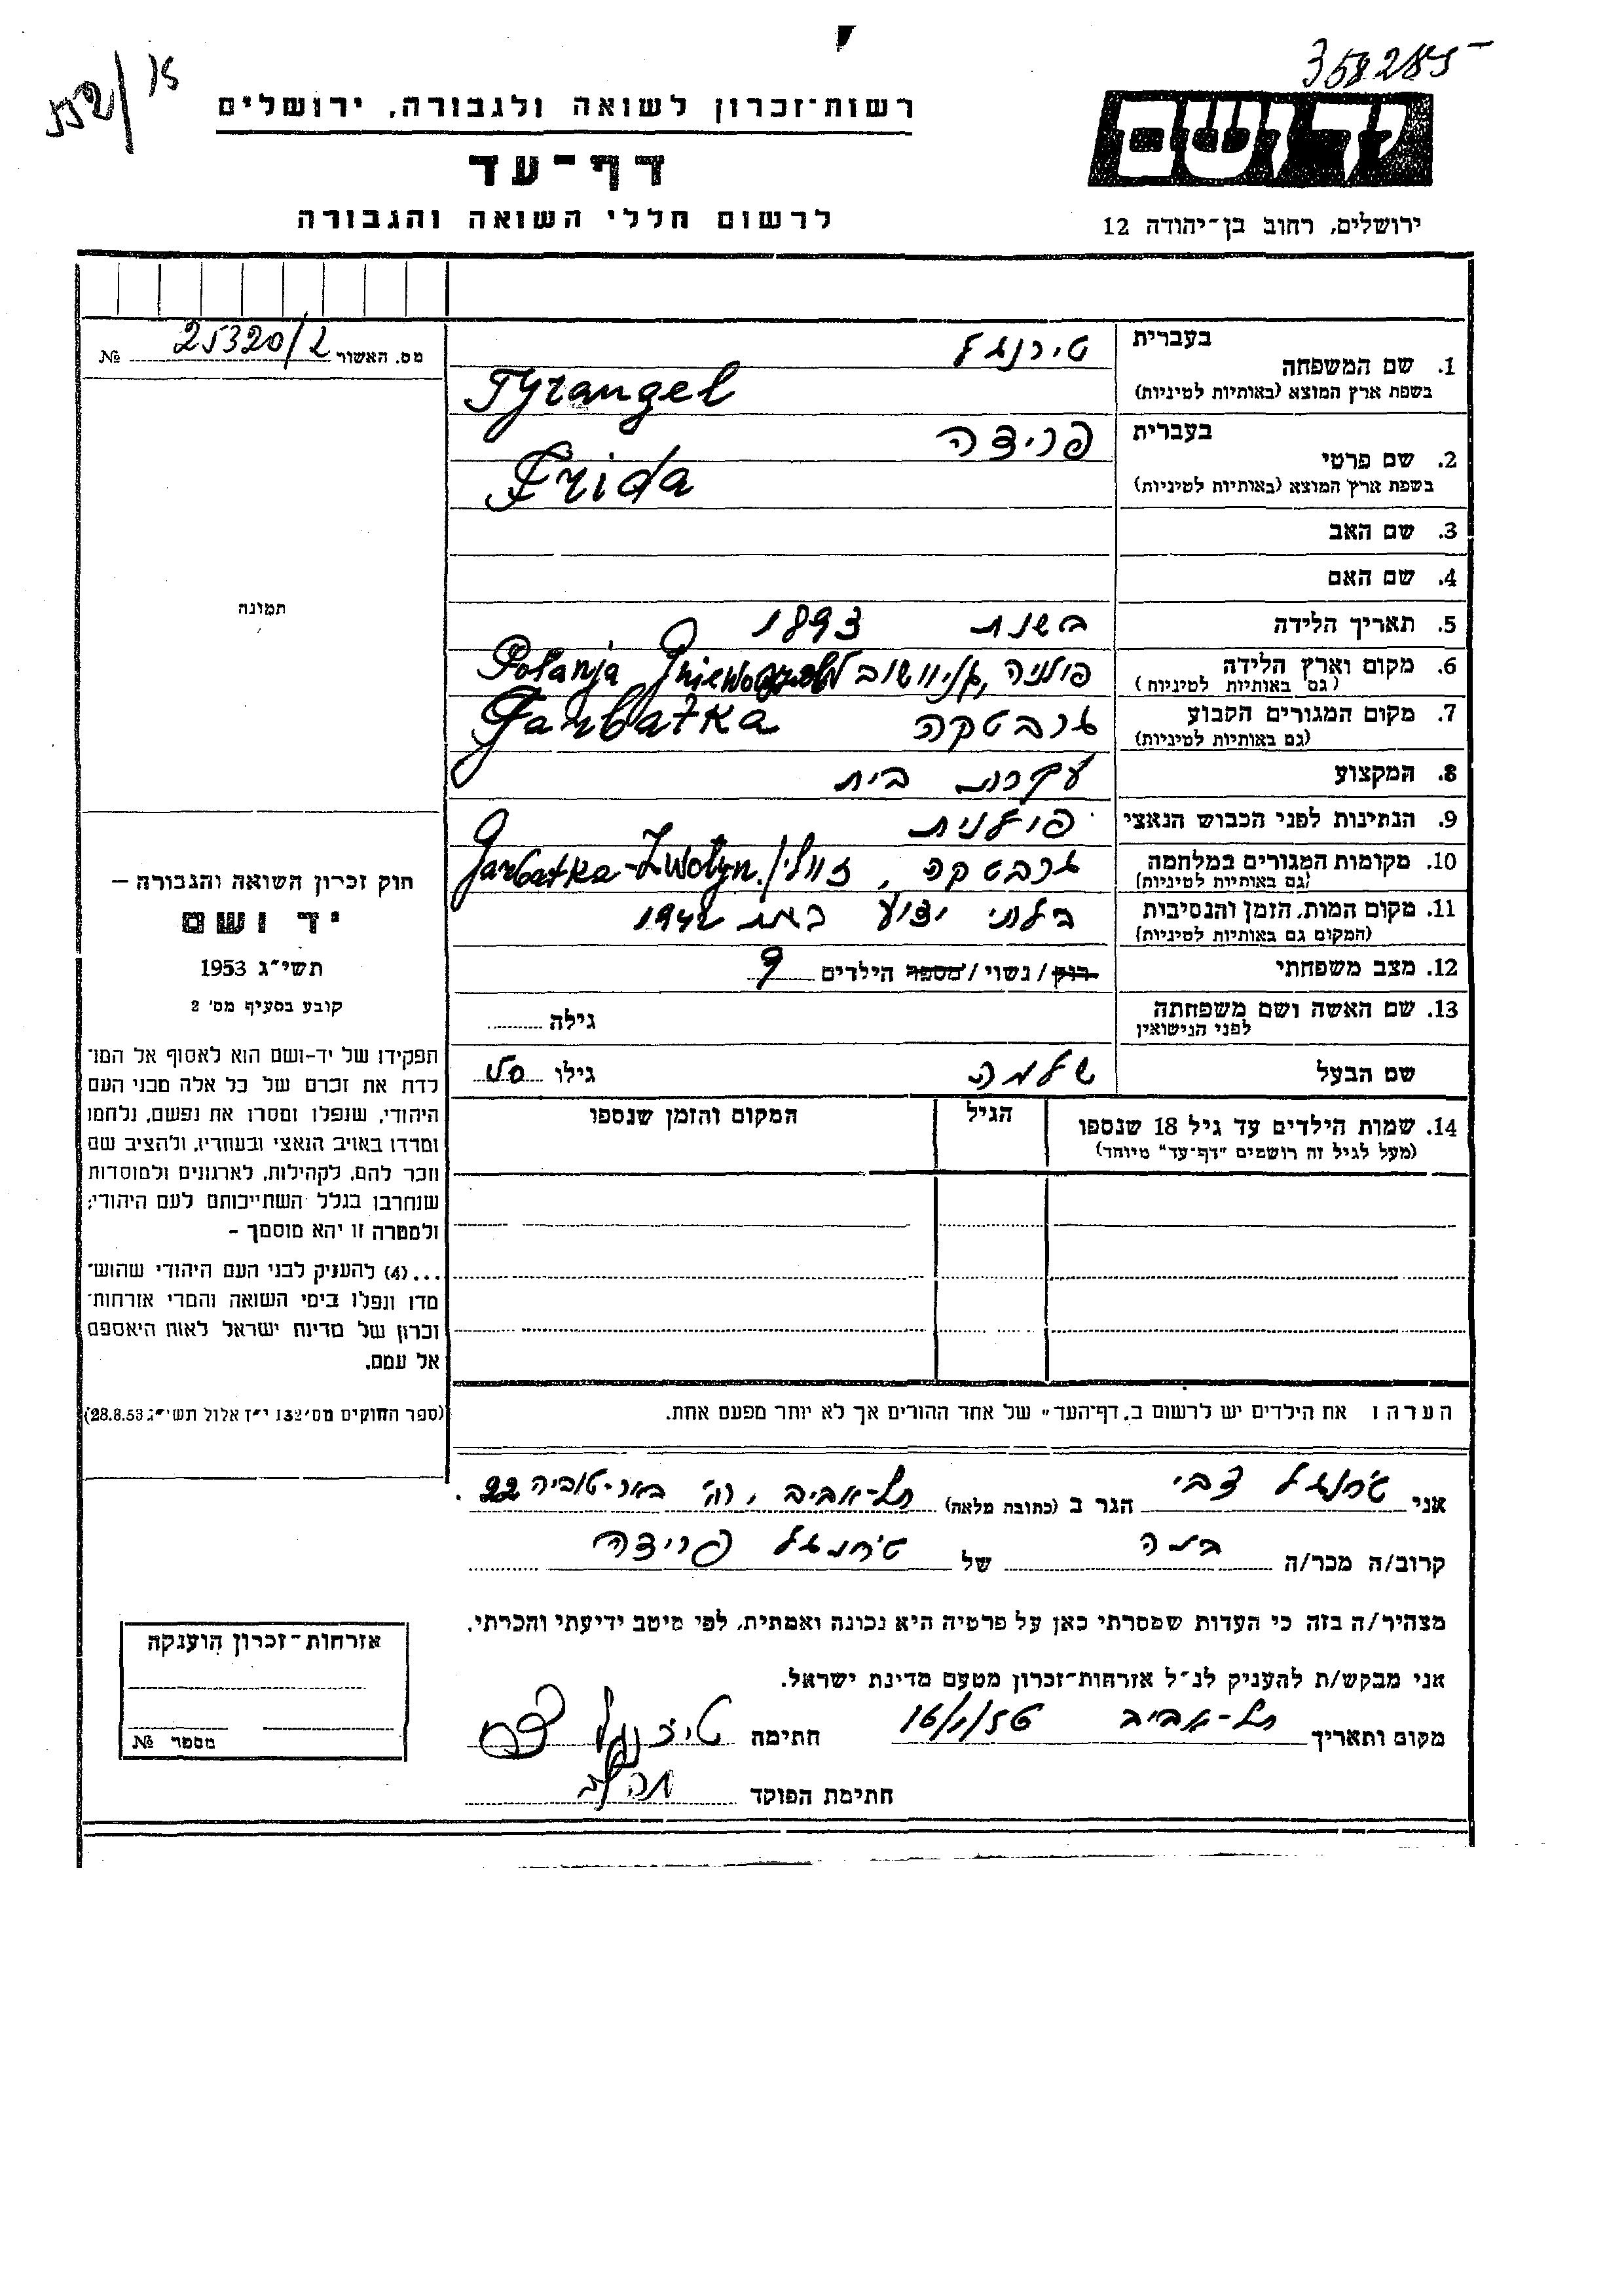 358285
552/15
רשות־זכרון לשואה ולגבורה, ירושלים
דף־עד
לרשום חללי השואה והגבורה
יד ושם
ירושלים, רחוב בן־יהודה 12
מס. האשור 25320/2 №
תמונה
בעברית טירנגל
1. שם המשפחה
בשפת ארץ המוצא (באותיות לטיניות) Tyrangel
בעברית פרידה
2. שם פרטי
בשפת ארץ המוצא (באותיות לטיניות) Frida
3. שם האב
4. שם האם
5. תאריך הלידה בשנת 1893
6. מקום וארץ הלידה פולניה, Polanja
(גם באותיות לטיניות)
7. מקום המגורים הקבוע גרבטקה Garbatka
(גם באותיות לטיניות)
8. המקצוע עקרת בית
9. הנתינות לפני הכבוש הנאצי פולנית
10. מקומות המגורים במלחמה גרבטקה, זוולין Garbatka-Zwolyn.
(גם באותיות לטיניות)
11. מקום המות, הזמן והנסיבות בלתי ידוע 1942
(המקום גם באותיות לטיניות)
12. מצב משפחתי רווק / נשוי / מספר הילדים 9
13. שם האשה ושם משפחתה גילה
לפני הנישואין
שם הבעל שלמה גילו 50
14. שמות הילדים עד גיל 18 שנספו הגיל המקום והזמן שנספו
(מעל לגיל זה רושמים "דף־עד" מיוחד)
הערה: את הילדים יש לרשום ב„דף־העד" של אחד ההורים אך לא יותר מפעם אחת.
חוק זכרון השואה והגבורה —
יד ושם
תשי"ג 1953
קובע בסעיף מס' 2
תפקידו של יד-ושם הוא לאסוף אל המו־
לדת את זכרם של כל אלה מבני העם
היהודי, שנפלו ומסרו את נפשם, נלחמו
ומרדו באויב הנאצי ובעוזריו, ולהציב שם
וזכר להם, לקהילות, לארגונים ולמוסדות
שנחרבו בגלל השתייכותם לעם היהודי;
ולמטרה זו יהא מוסמך –
...(4) להעניק לבני העם היהודי שהוש־
מדו ונפלו בימי השואה והמרי אזרחות־
זכרון של מדינת ישראל לאות היאספם
אל עמם.
(ספר החוקים מס' 132 י"ז אלול תשי"ג 28.8.53)
אני טירנגל צבי הגר ב (כתובת מלאה) תל-אביב, רח' באר-טוביה 22.
קרוב/ה מכר/ה בנה של טירנגל פרידה
מצהיר/ה בזה כי העדות שמסרתי כאן על פרטיה היא נכונה ואמתית, לפי מיטב ידיעתי והכרתי.
אני מבקש/ת להעניק לנ"ל אזרחות־זכרון מטעם מדינת ישראל.
מקום ותאריך תל-אביב חתימה טירנגל צבי
חתימת הפוקד
אזרחות־זכרון הוענקה
מספר №